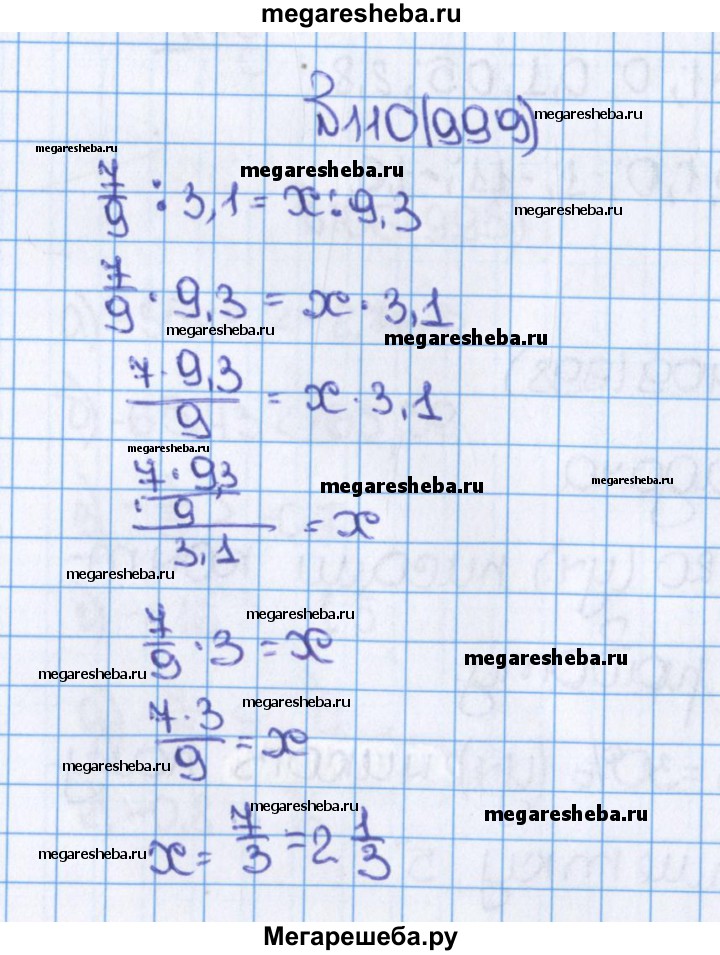 megaresheba.ru
№110(999)
megaresheba.ru
megaresheba.ru
megaresheba.ru
7/9 : 3,1 = x : 9,3
megaresheba.ru
7/9 · 9,3 = x · 3,1
megaresheba.ru
megaresheba.ru
7 · 9,3 / 9 = x · 3,1
megaresheba.ru
7 · 9,3 / 9 / 3,1 = x
megaresheba.ru
megaresheba.ru
megaresheba.ru
megaresheba.ru
7/9 · 3 = x
megaresheba.ru
megaresheba.ru
megaresheba.ru
7 · 3 / 9 = x
megaresheba.ru
megaresheba.ru
megaresheba.ru
x = 7/3 = 2 1/3
megaresheba.ru
Мегарешеба.ру